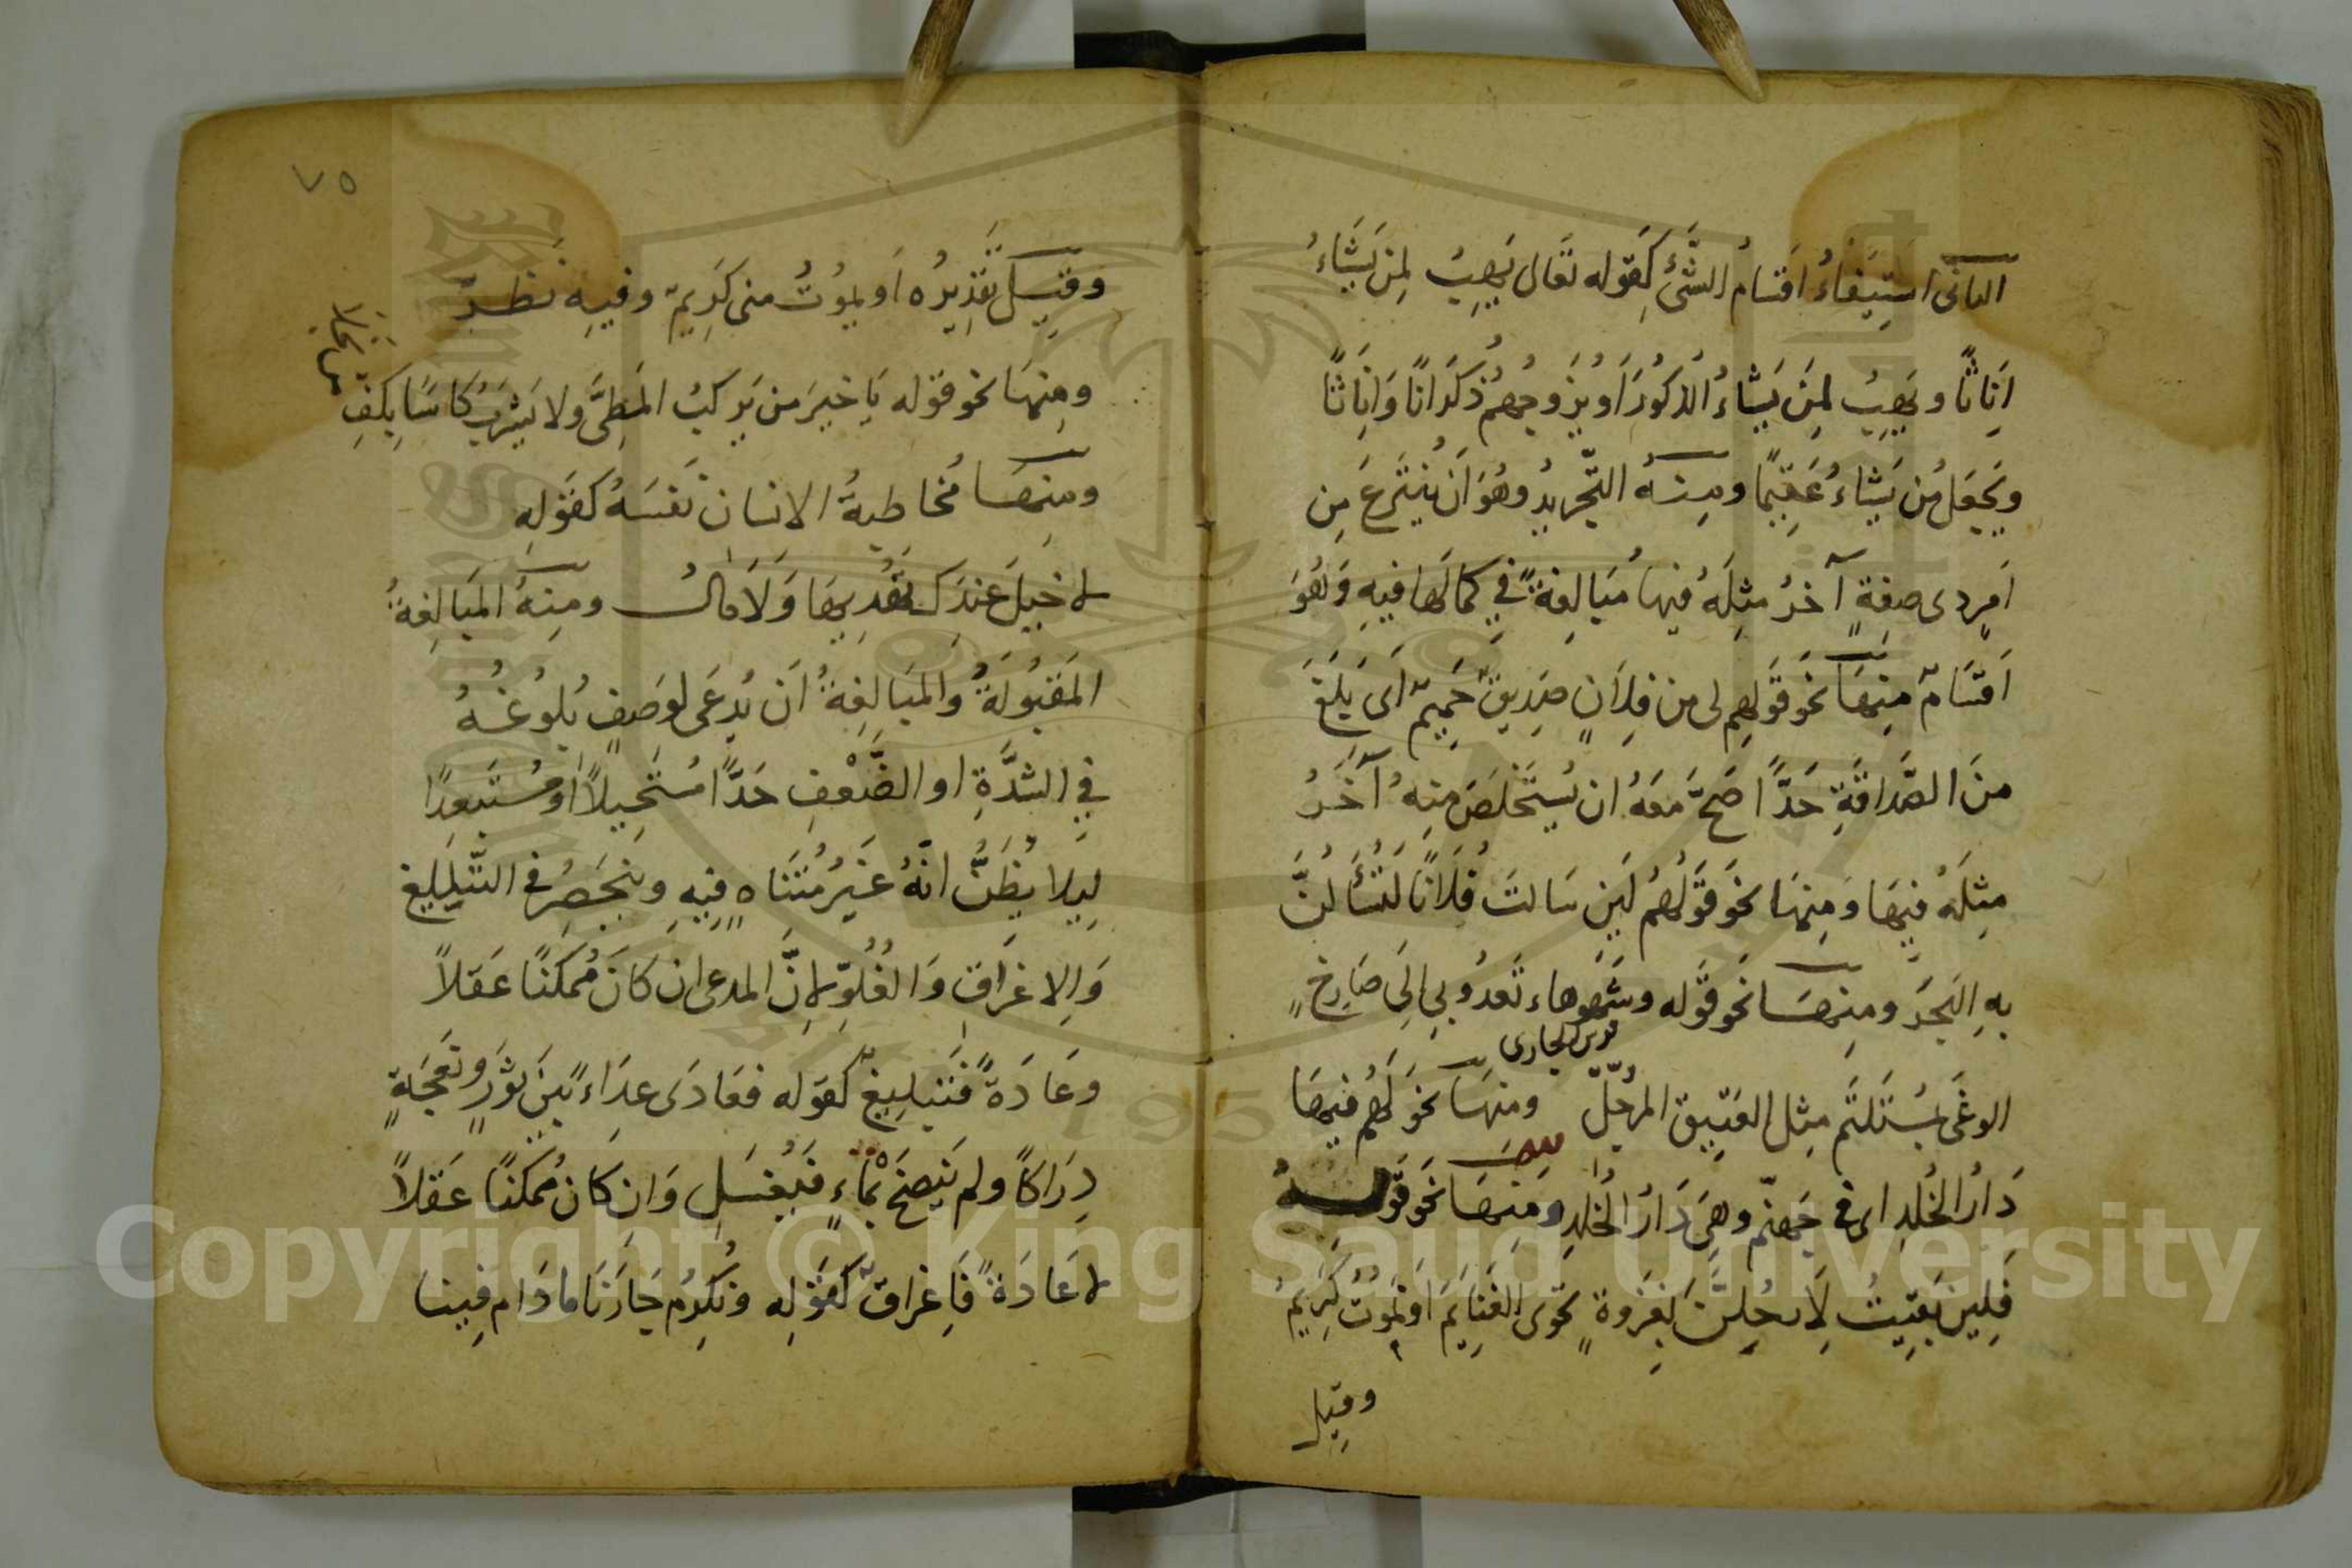 الثانى استيفاءُ اقسامُ الشئ كقوله تعالى يهب لمن يشاءُ
اناثًا ويهب لمن يشاءُ الذكورَ او يزوجهم ذكرانًا واناثا
ويجعل من يشاءُ عقيمًا ومنه التجريدُ وهو ان ينتزع من
امرٍ ذى صفةٍ آخرُ مثله فيها مبالغةً في كمالها فيه وهو
اقسامٌ منها نحو قولهم لى من فلانٍ صديقٌ حميمٌ اى بلغ
من الصَّداقةِ حدًّا صحَّ معه ان يستخلصَ منه آخرُ
مثله فيها ومنها نحو قولهم لين سالت فلانًا لتسألنَّ
به البحرَ ومنها نحو قوله وشوهاء تعدو بي الى صارخِ
الوغى بمستلئم مثل الفنيق المرحّل ومنها نحو لهم فيها
دارُ الخلدِ اى في جهنّم وهى دارُ الخلدِ ومنها نحو قوله
فلين بقيتُ لارحلنَّ بغزوةٍ تحوى الغنايم او يموتُ كريمُ
وقيل
٧٥
وقيل تقديره او يموتُ منى كريمٌ وفيه نظرٌ
ومنها نحو قوله يا خير من يركبُ المطىَّ ولا يشربُ كاسا بكفِ
من بخلا
ومنها مخاطبةُ الانسان نفسه كقوله
لا خيلَ عندك تهديها ولا مالُ ومنه المبالغةُ
المقبولةُ والمبالغةُ ان يدعى لوصفٍ بلوغُهُ
في الشدَّةِ او الضَّعْفِ حدًّا مستحيلاً او مستبعدًا
ليلا يظنُّ انّه غيرُ متناهٍ فيه وينحصرُ في التبليغ
والاغراق والغلوّ لانَّ المدعى ان كان ممكنًا عقلاً
وعادةً فتبليغٌ كقوله فعادى عداءً بين ثورٍ ونعجةٍ
دراكًا ولم ينضح بماءٍ فيغسل وان كان ممكنًا عقلاً
لا عادةً فاغراقٌ كقوله ونكرمُ جارنا ما دام فينا
Copyright © King Saud University
1957